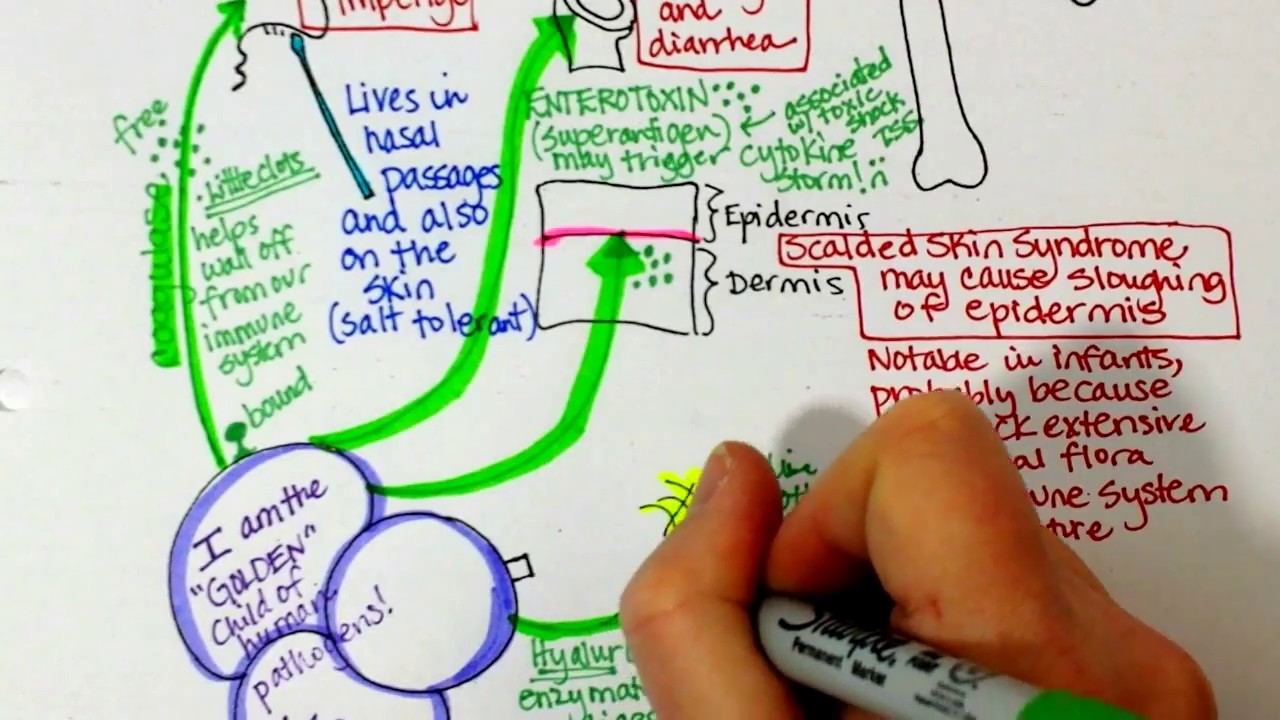 impetigo
and
diarrhea
free
coagulase
Little clots
helps
wall off
from our
immune
system
bound
Lives in
nasal
passages
and also
on the
skin
(salt tolerant)
ENTEROTOXIN
(superantigen)
may trigger
cytokine
storm!
associated
w/ toxic
shock
TSS
Epidermis
Dermis
Scalded Skin Syndrome
may cause sloughing
of epidermis
Notable in infants,
probably because
extensive
flora
system
I am the
"GOLDEN"
Child of
human
pathogens!
Hyalur
enzymat
Sharpie
Permanent Marker